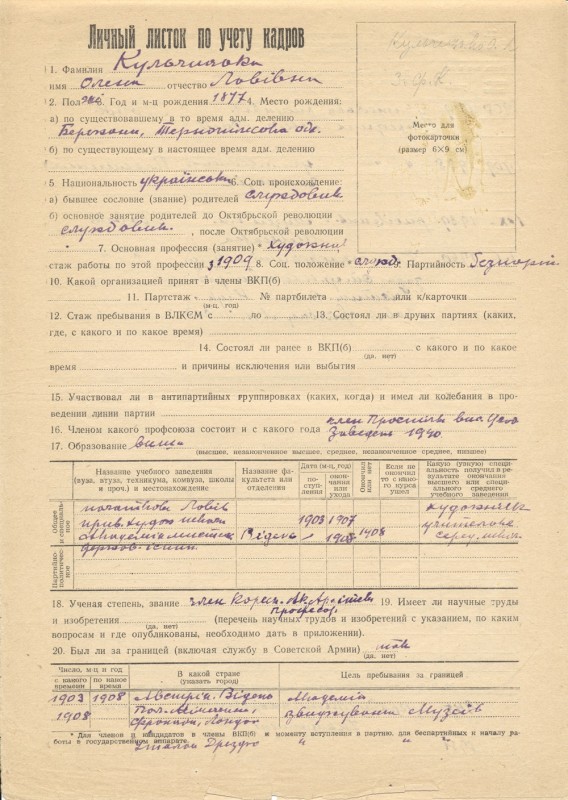 Личный листок по учету кадров
1. Фамилия Кульчицька
имя Олена отчество Львівна
2. Пол жін 3. Год и м-ц рождения 1877 4. Место рождения:
а) по существовавшему в то время адм. делению
Бережани, Тернопільська обл.
б) по существующему в настоящее время адм. делению
Место для
фотокарточки
(размер 6×9 см)
5 Национальность українська 6. Соц. происхождение:
а) бывшее сословие (звание) родителей службовий
б) основное занятие родителей до Октябрьской революции
службовий, после Октябрьской революции
7. Основная профессия (занятие) * Художник
стаж работы по этой профессии з 1909 8. Соц. положение * служб. 9. Партийность безпарт.
10. Какой организацией принят в члены ВКП(б)
11. Партстаж № партбилета или к/карточки
(м-ц, год)
12. Стаж пребывания в ВЛКСМ с по 13. Состоял ли в других партиях (каких,
где, с какого и по какое время)
14. Состоял ли ранее в ВКП(б) с какого и по какое
(да, нет)
время и причины исключения или выбытия
15. Участвовал ли в антипартийных группировках (каких, когда) и имел ли колебания в про-
ведении линии партии
16. Членом какого профсоюза состоит и с какого года член
1940
17. Образование вища
(высшее, незаконченное высшее, среднее, незаконченное среднее, низшее)
Название учебного заведения
(вуза, втуза, техникума, комвуза, школы
и проч.) и местонахождение
Название фа-
культета или
отделения
Дата (м-ц, год)
по-
ступ-
ления
окон-
чания
или
ухода
Окончил
или нет
Если не
окончил
то с како-
го курса
ушел
Какую (узкую) специ-
альность получил в ре-
зультате окончания
высшего или специ-
ального среднего
учебного заведения
Общее
и специаль-
ное
Львів 1903 1907 художник
Відень 1908 1908
Партийно-
политичес-
кое
18. Ученая степень, звание член Кор. Ак. Архітект. 19. Имеет ли научные труды
Професор
и изобретения (перечень научных трудов и изобретений с указанием, по каким
(да, нет)
вопросам и где опубликованы, необходимо дать в приложении).
20. Был ли за границей (включая службу в Советской Армии) так
(да, нет)
Число, м-ц и год
с какого
времени
по какое
время
В какой стране
(указать город)
Цель пребывания за границей
1903 1908 Австрія, Відень Академія
1908 Музеїв
Лондон
* Для членов и кандидатов в члены ВКП(б) к моменту вступления в партию, для беспартийных к началу ра-
боты в государственном аппарате.
Італія Дрезден